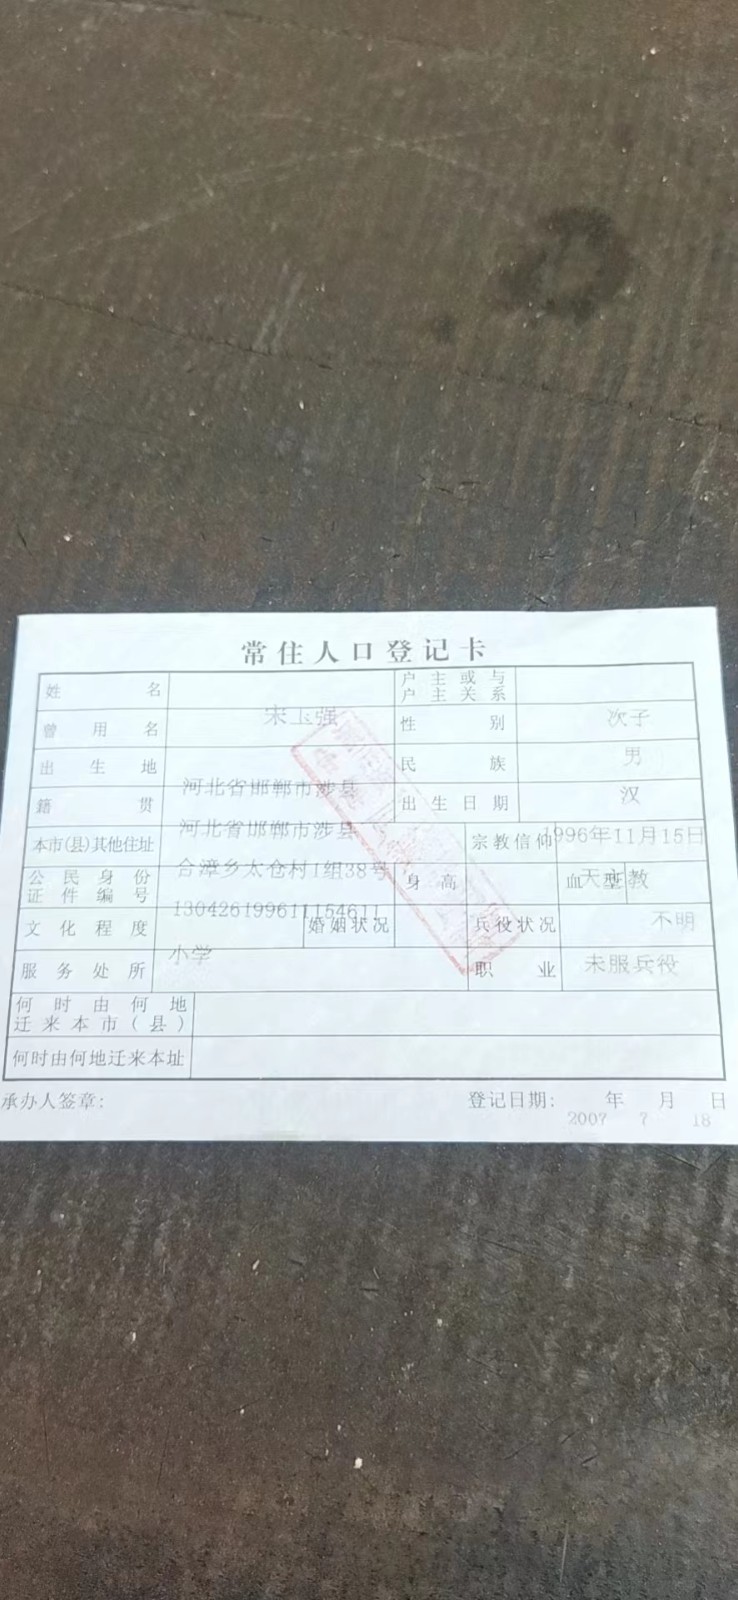 常住人口登记卡
姓名 户主或与户主关系
宋玉强 次子
曾用名 性别
男
出生地 民族
河北省邯郸市涉县 汉
籍贯 出生日期
河北省邯郸市涉县 1996年11月15日
本市(县)其他住址 宗教信仰
合漳乡太仓村1组38号 天主教
公民身份证件编号 身高 血型
130426199611154611 不明
文化程度 婚姻状况 兵役状况
小学 未服兵役
服务处所 职业
何时由何地迁来本市(县)
何时由何地迁来本址
承办人签章: 登记日期: 年 月 日
2007 7 18